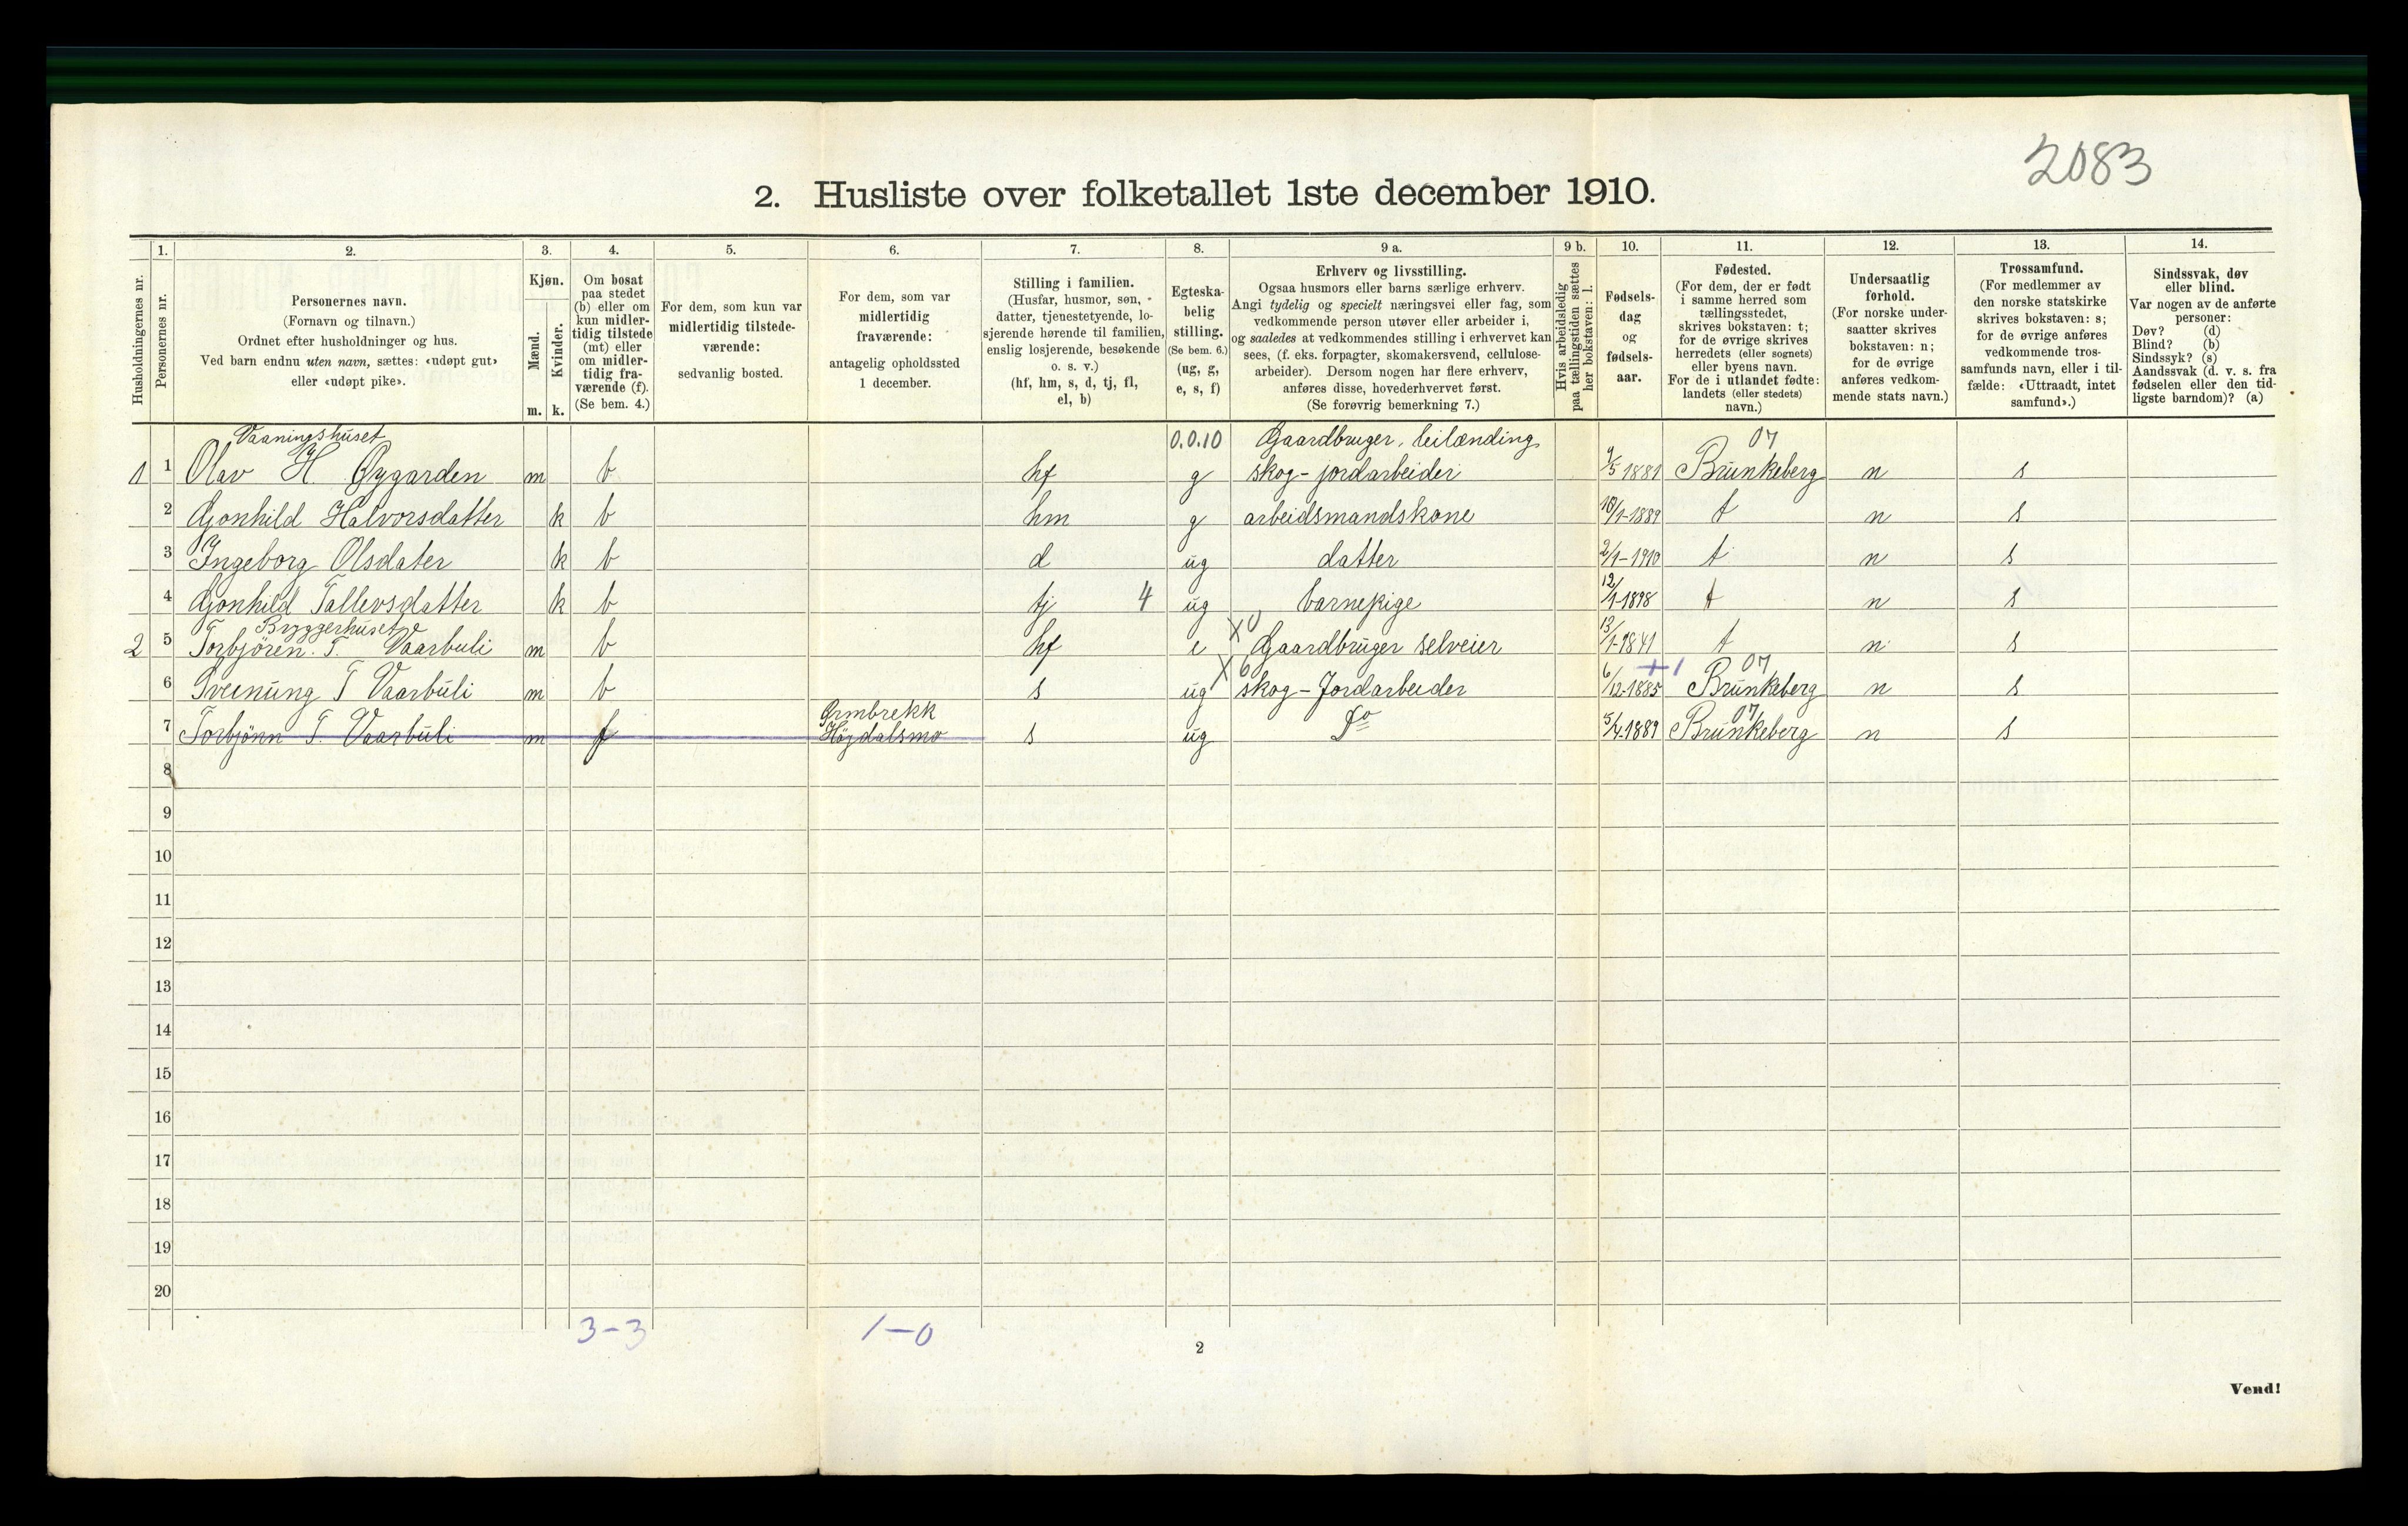 2083
2. Husliste over folketallet 1ste december 1910.
Husholdningernes nr.
1.
Personernes nr.
2.
Personernes navn.
(Fornavn og tilnavn.)
Ordnet efter husholdninger og hus.
Ved barn endnu uten navn, sættes: «udøpt gut»
eller «udøpt pike».
3.
Kjøn.
Mænd.
Kvinder.
m. k.
4.
Om bosat
paa stedet
(b) eller om
kun midler-
tidig tilstede
(mt) eller
om midler-
tidig fra-
værende (f).
(Se bem. 4.)
5.
For dem, som kun var
midlertidig tilstede-
værende:
sedvanlig bosted.
6.
For dem, som var
midlertidig
fraværende:
antagelig opholdssted
1 december.
7.
Stilling i familien.
(Husfar, husmor, søn,
datter, tjenestetyende, lo-
sjerende hørende til familien,
enslig losjerende, besøkende
o. s. v.)
(hf, hm, s, d, tj, fl,
el, b)
8.
Egteska-
belig
stilling.
(Se bem. 6.)
(ug, g,
e, s, f)
9 a.
Erhverv og livsstilling.
Ogsaa husmors eller barns særlige erhverv.
Angi tydelig og specielt næringsvei eller fag, som
vedkommende person utøver eller arbeider i,
og saaledes at vedkommendes stilling i erhvervet kan
sees, (f. eks. forpagter, skomakersvend, cellulose-
arbeider). Dersom nogen har flere erhverv,
anføres disse, hovederhvervet først.
(Se forøvrig bemerkning 7.)
9 b.
Hvis arbeidsledig
paa tællingstiden sættes
her bokstaven: l.
10.
Fødsels-
dag
og
fødsels-
aar.
11.
Fødested.
(For dem, der er født
i samme herred som
tællingsstedet,
skrives bokstaven: t;
for de øvrige skrives
herredets (eller sognets)
eller byens navn.
For de i utlandet fødte:
landets (eller stedets)
navn.)
12.
Undersaatlig
forhold.
(For norske under-
saatter skrives
bokstaven: n;
for de øvrige
anføres vedkom-
mende stats navn.)
13.
Trossamfund.
(For medlemmer av
den norske statskirke
skrives bokstaven: s;
for de øvrige anføres
vedkommende tros-
samfunds navn, eller i til-
fælde: «Uttraadt, intet
samfund».)
14.
Sindssvak, døv
eller blind.
Var nogen av de anførte
personer:
Døv? (d)
Blind? (b)
Sindssyk? (s)
Aandssvak (d. v. s. fra
fødselen eller den tid-
ligste barndom)? (a)
Vaaningshuset 0.0.10 Gaardbruger, leilænding 07
1 1 Olav H. Øygarden m b hf g skog-jordarbeider 9/5 1881 Brunkeberg n s
2 Gonhild Halvorsdatter k b hm g arbeidsmandskone 10/1-1889 t n s
3 Ingeborg Olsdater k b d ug datter 2/1-1910 t n s
4 Gonhild Tallevsdatter k b tj 4 ug barnepige 12/1-1898 t n s
Bryggerhuset
2 5 Torbjören. T. Vaarbuli m b hf e X Gaardbruger selveier 13/1-1841 t n s
+1 07
6 Sveinung T Vaarbuli m b s ug X skog-Jordarbeider 6/12-1885 Brunkeberg n s
Grmbrekk 07
7 Torbjönn T. Vaarbuli m f Höjdalsmo s ug Do 5/4-1889 Brunkeberg n s
8
9
10
11
12
13
14
15
16
17
18
19
20
3-3 1-0
2
Vend!